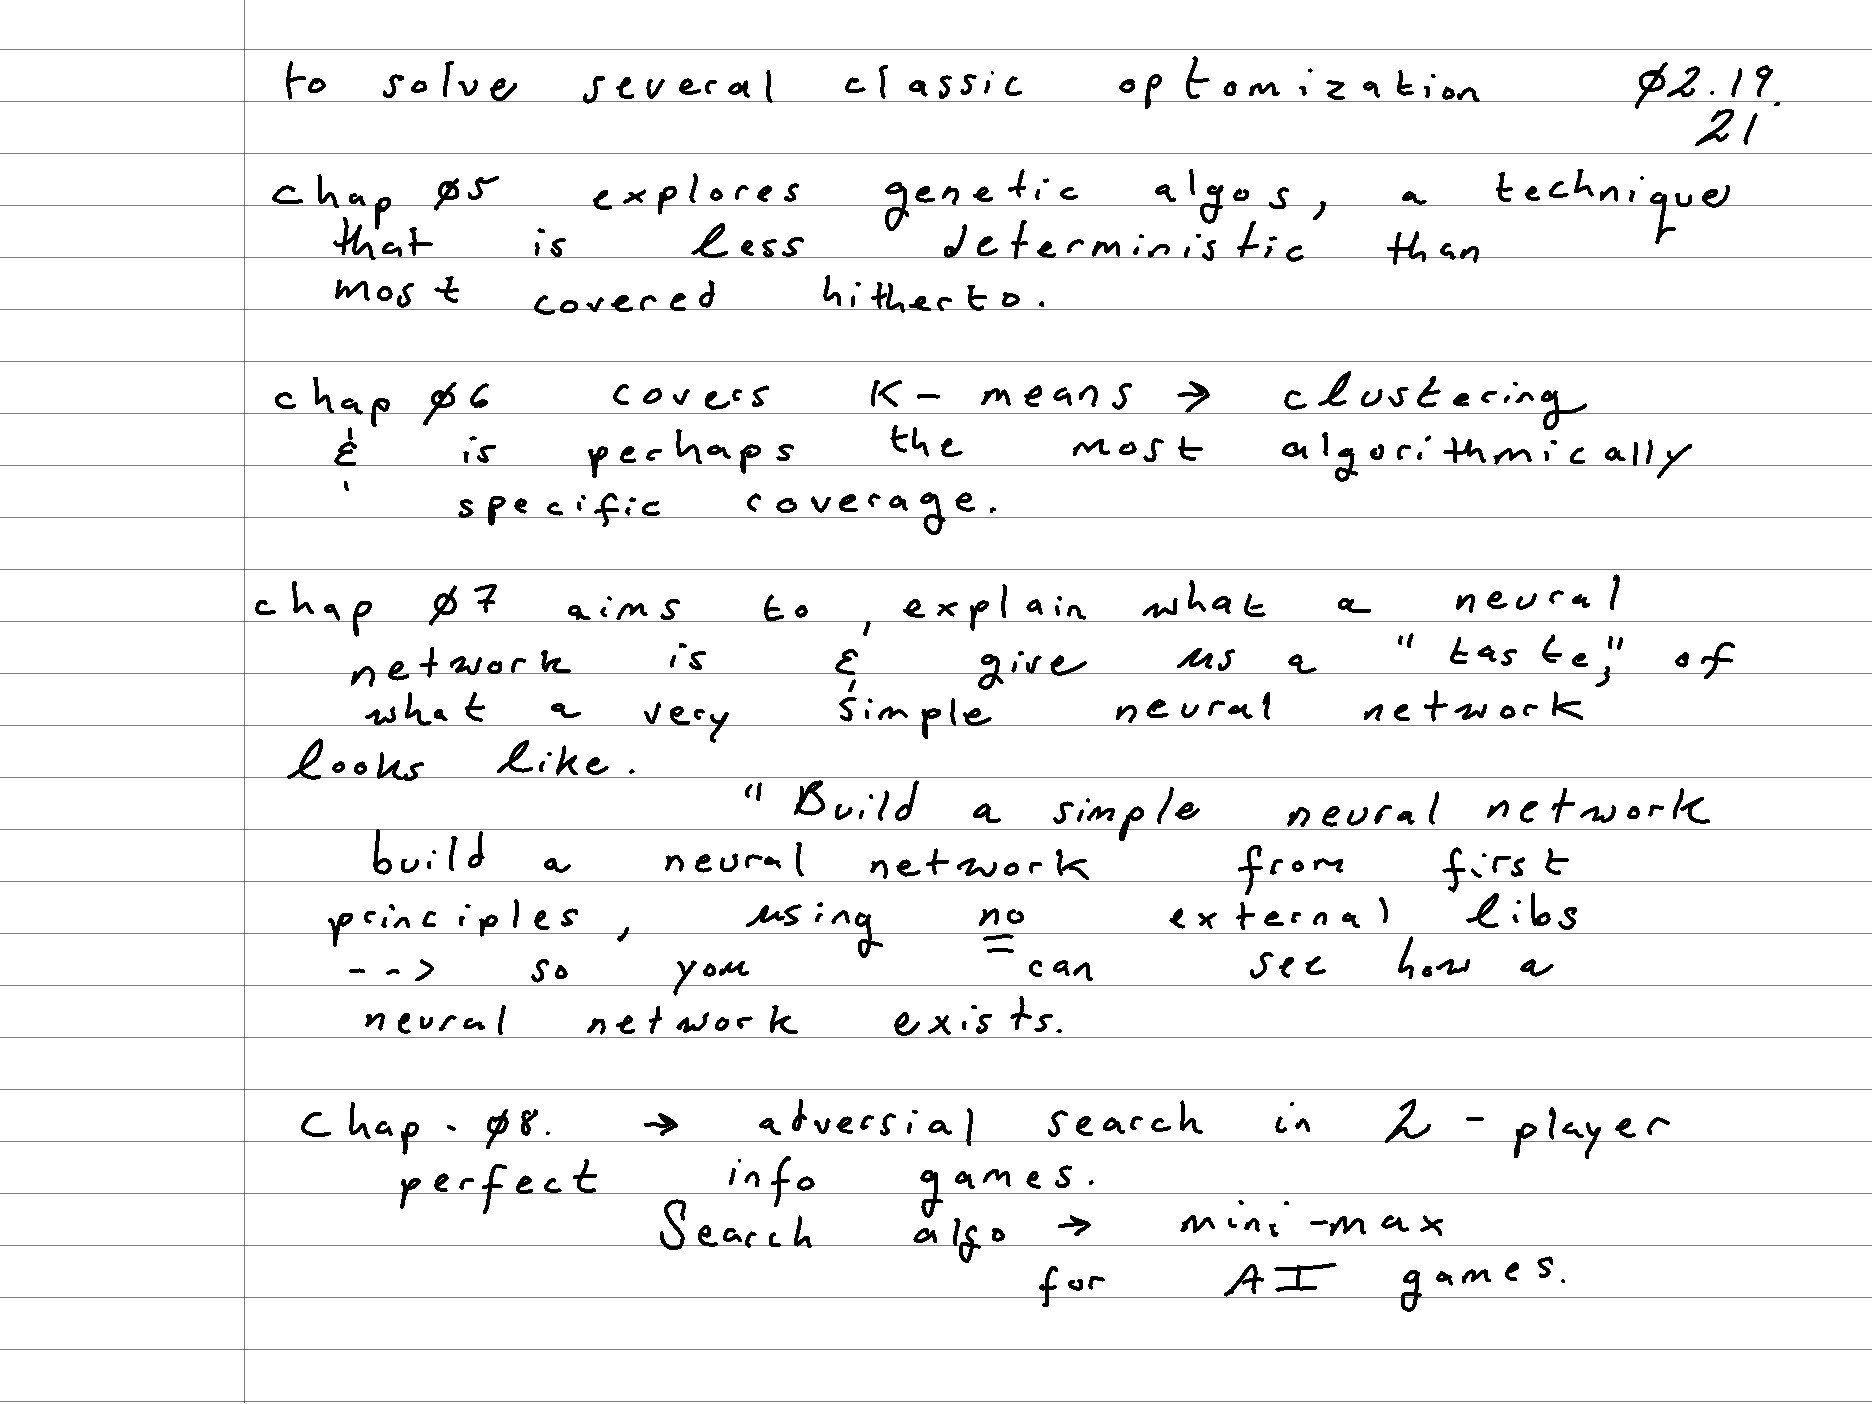 to solve several classic optomization Ø2.19.
21
chap Ø5 explores genetic algos, a technique
that is less deterministic than
most covered hitherto.
chap Ø6 covers K-means → clustering
& is perhaps the most algorithmically
specific coverage.
chap Ø7 aims to explain what a neural
network is & give us a "taste," of
what a very simple neural network
looks like.
"Build a simple neural network
build a neural network from first
principles, using no external libs
--> so you can see how a
neural network exists.
Chap. Ø8. → adversial search in 2-player
perfect info games.
Search algo → mini-max
for AI games.